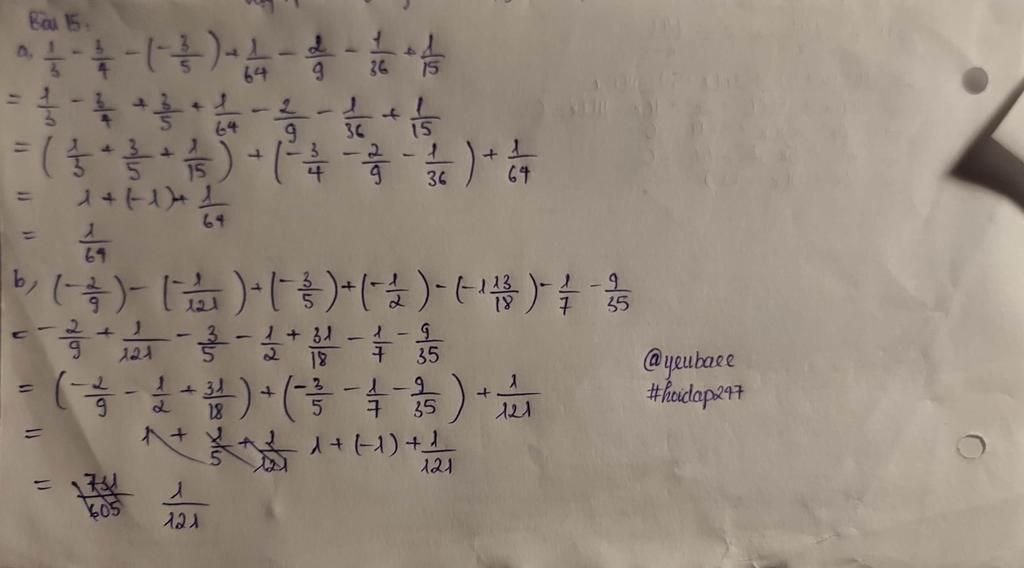 Bài 15:
a, 1/3 - 3/4 - (-3/5) + 1/64 - 2/9 - 1/36 + 1/15
= 1/3 - 3/4 + 3/5 + 1/64 - 2/9 - 1/36 + 1/15
= (1/3 + 3/5 + 1/15) + (-3/4 - 2/9 - 1/36) + 1/64
= 1 + (-1) + 1/64
= 1/64
b, (-2/9) - (-1/121) + (-3/5) + (-1/2) - (-1 13/18) - 1/7 - 9/35
= -2/9 + 1/121 - 3/5 - 1/2 + 31/18 - 1/7 - 9/35
= (-2/9 - 1/2 + 31/18) + (-3/5 - 1/7 - 9/35) + 1/121
= 1 + 1/5 + 1/121 1 + (-1) + 1/121
= 731/605 1/121
@yeubaee
#hoidap247